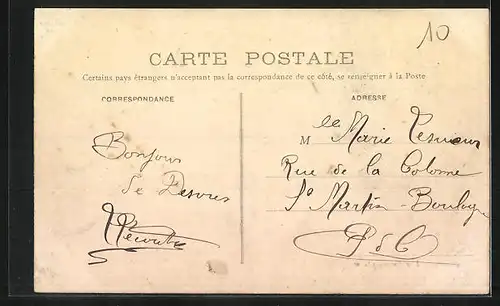 10
CARTE POSTALE
Certains pays étrangers n'acceptant pas la correspondance de ce côté, se renseigner à la Poste
CORRESPONDANCE
ADRESSE
Bonjour
de Desvres
Mlle Marie
Rue de la Colonne
St Martin-Boulogne
P d C